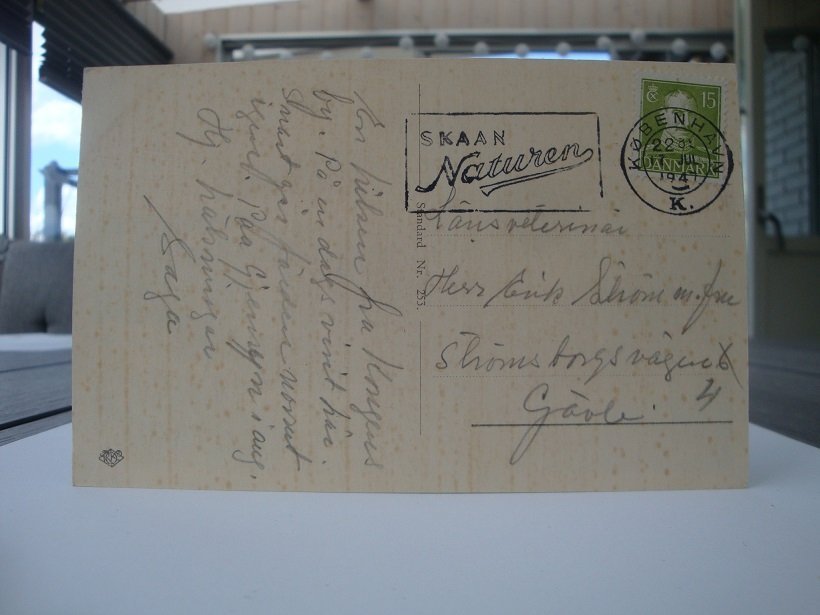 En hilsen fra Kongens
by. På en dags visit här.
Snart går färden norrut
igen. Paa Gjensyn i aug.
Hj. hälsningar
Saga
SKAAN
Naturen
15
DANMARK
KØBENHAVN
22
194
K.
Standard Nr. 253
Länsveterinär
Herr Erik Ström m. fru
Strömsborgsvägen
4
Gävle.